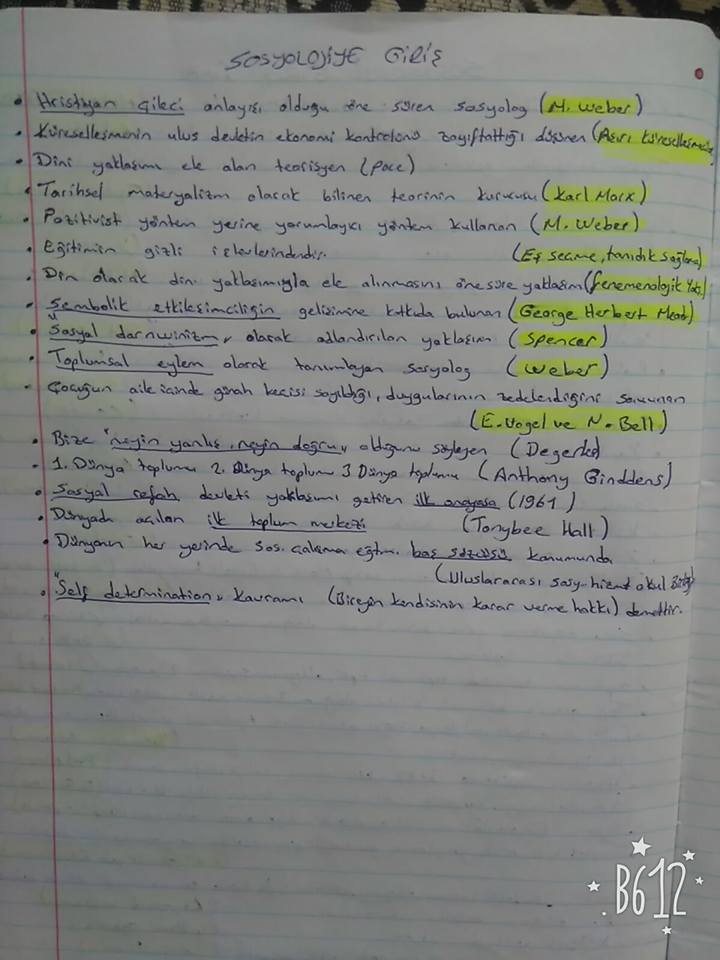 SOSYOLOJİYE GİRİŞ
• Hristiyan çileci anlayışı olduğu öne süren sosyolog (M. Weber)
• Küreselleşmenin ulus devletin ekonomi kontrolünü zayıflattığı düşünen (Aşırı küreselleşmeciler
• Dini yaklaşımı ele alan teorisyen (Pace)
• Tarihsel materyalizm olarak bilinen teorinin kurucusu (Karl Marx)
• Pozitivist yöntem yerine yorumlayıcı yöntem kullanan (M. Weber)
• Eğitimin gizli işlevlerindendir. (Eş seçme, tanıdık sağlama)
• Din olarak din yaklaşımıyla ele alınmasını öne süre yaklaşım (fenemenolojik Yak)
• Sembolik etkileşimciliğin gelişimine katkıda bulunan (George Herbert Mead)
• "Sosyal darnwinizm" olarak adlandırılan yaklaşım (Spencer)
• Toplumsal eylem olarak tanımlayan sosyolog (Weber)
• Çocuğun aile içinde günah keçisi sayıldığı, duygularının zedelendiğini savunan
(E. Vogel ve N. Bell)
• Bize "neyin yanlış, neyin doğru" olduğunu söyleyen (Değerler)
• 1. Dünya toplumu 2. Dünya toplumu 3 Dünya toplumu (Anthony Ginddens)
• Sosyal refah devleti yaklaşımı getiren ilk anayasa (1961)
• Dünyada açılan ilk toplum merkezi (Tonybee Hall)
• Dünyanın her yerinde sos. çalışma eğitm. baş sözcüsü konumunda
(Uluslararası sosy. hizmet okul Birliği
• "Self determination" kavramı (Bireyin kendisinin karar verme hakkı) demektir.
B612